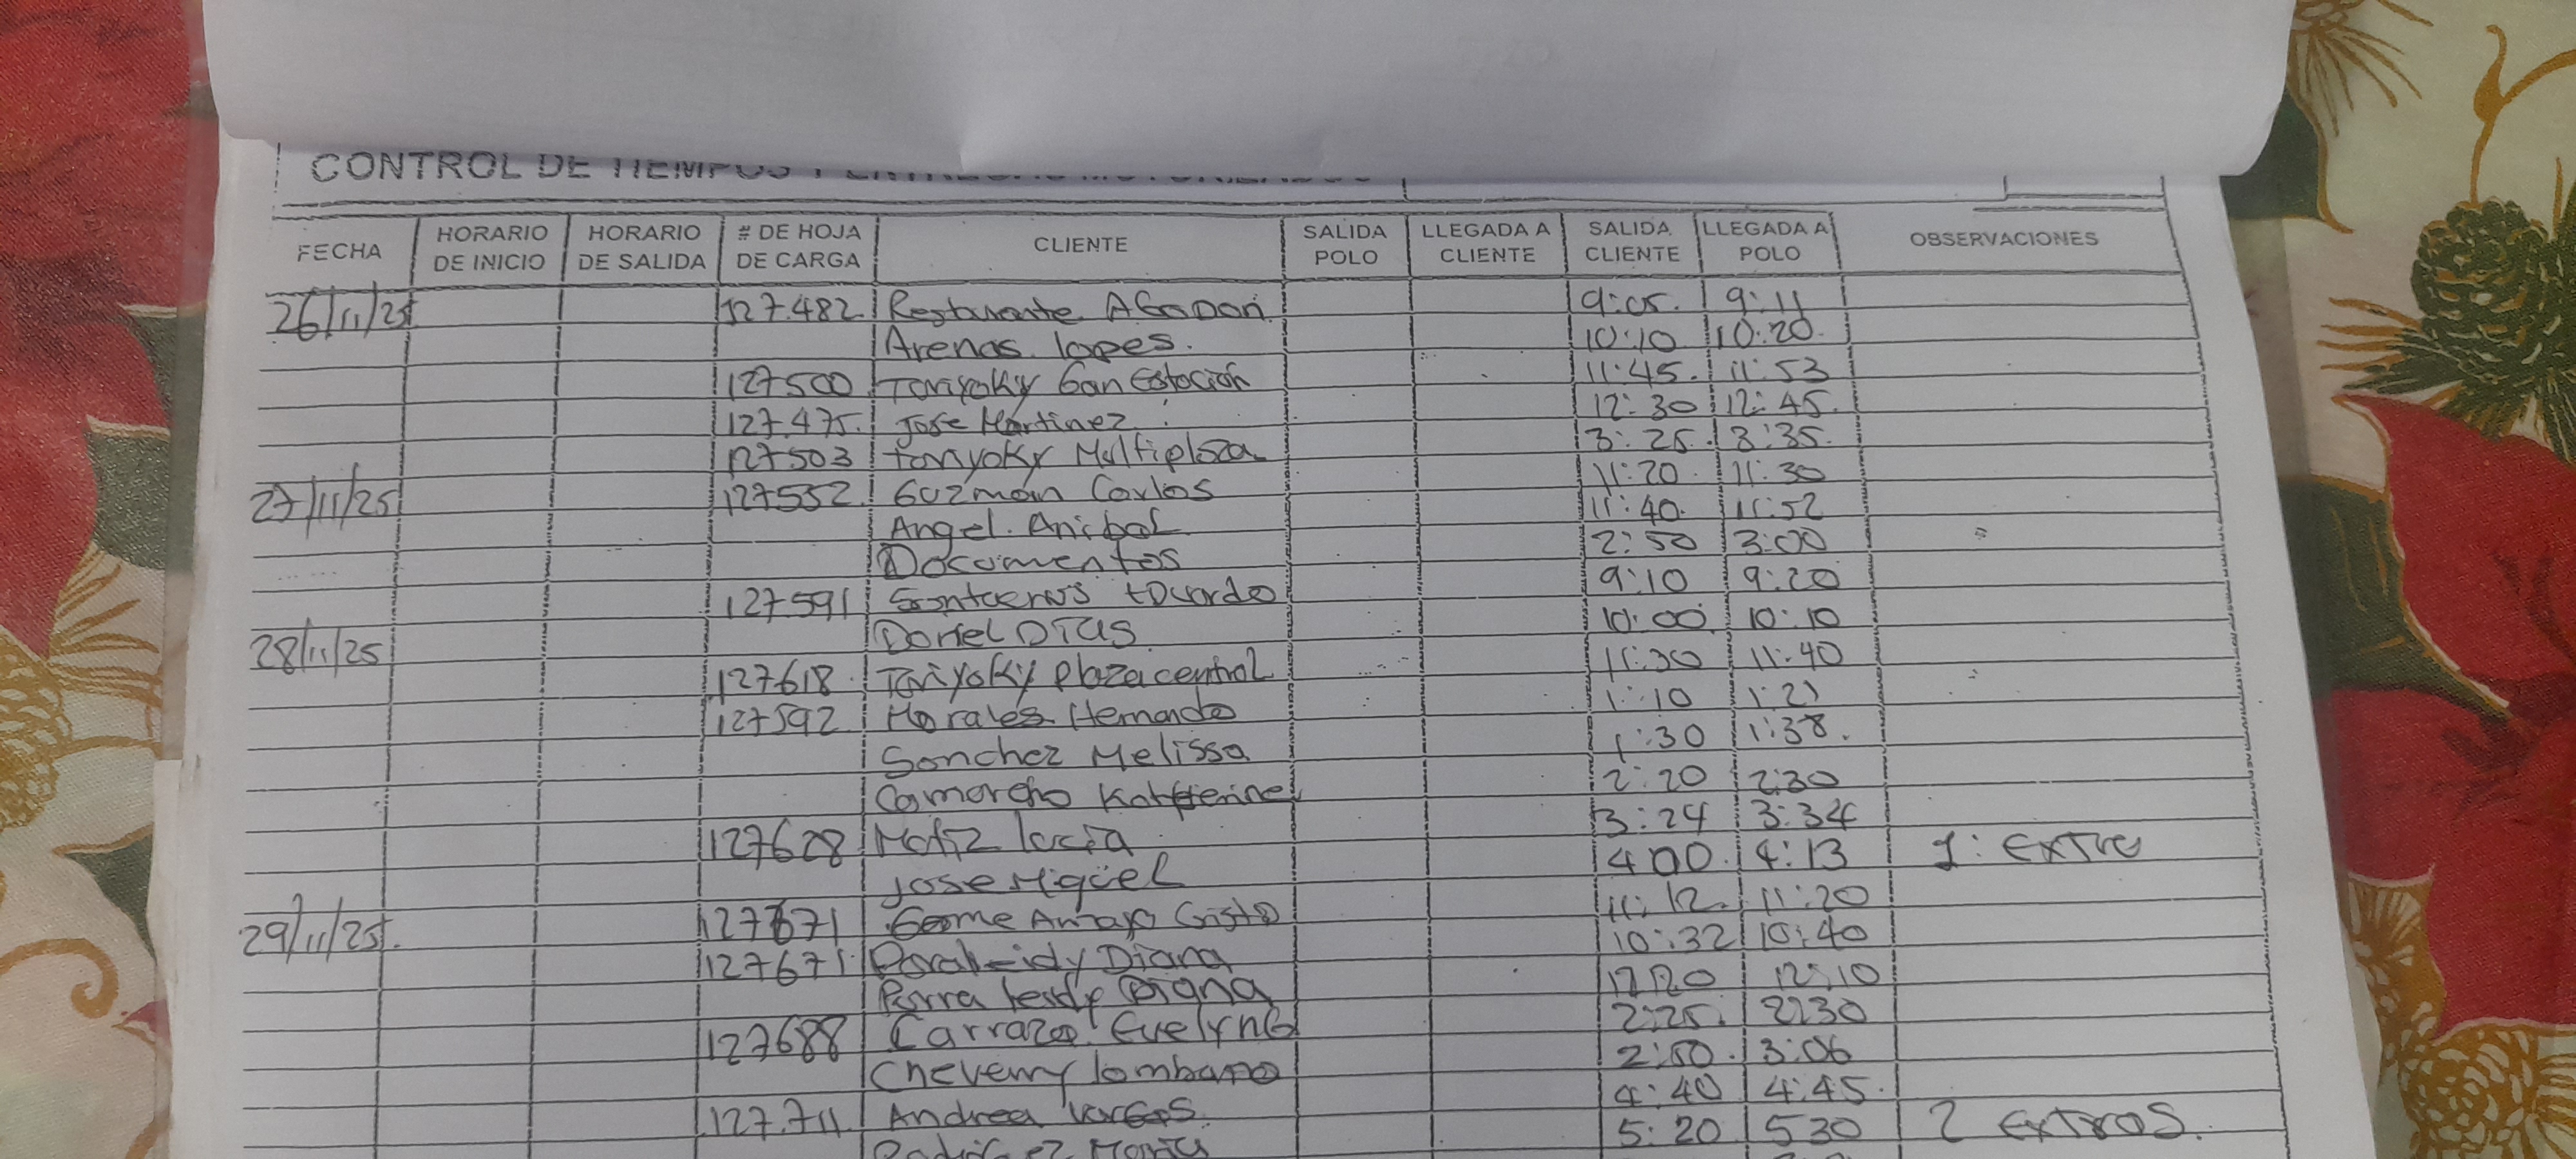 CONTROL DE TIEMPOS Y ENTREGAS MOTORIZADOS
FECHA HORARIO DE INICIO HORARIO DE SALIDA # DE HOJA DE CARGA CLIENTE SALIDA POLO LLEGADA A CLIENTE SALIDA CLIENTE LLEGADA A POLO OBSERVACIONES
26/11/25 127.482 9:05. 9:11
Arenas lopes. 10:10 10:20.
127500 Toriyoky Gan Estación 11:45. 11:53
127.475. Jose Martinez 12:30 12:45.
127503 toriyoky Multiplaza 3:25. 3:35.
27/11/25 127532. Guzman Carlos 11:20 11:30
Angel. Anibal 11:40. 11:52
Documentos 2:50 3:00
127591 9:10 9:20
28/11/25 10:00 10:10
127618 Toriyoky plaza central 11:30 11:40
127592. Morales Hernando 1:10 1:21
Sanchez Melissa 1:30 1:38.
Camargo 2:20 2:30
127628 lucia 3:24 3:34
Jose Miguel 4:00. 4:13 1: Extra
29/11/25. 127671 Amaya 11:12. 11:20
127671. Diana 10:32 10:40
Parra leidy Diana 12:10
127688 2:25. 2:30
2:50. 3:06
127.711. Andrea Vargas. 4:40 4:45.
5:20 530 2 Extras.